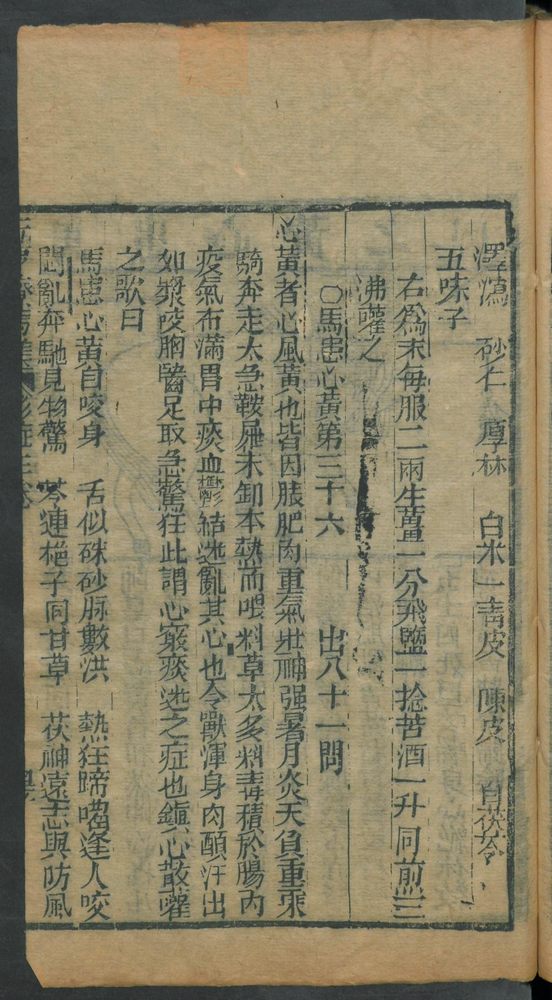 澤瀉　砂仁　厚林　白朮　青皮　陳皮　白茯苓
五味子
右為末每服二兩生薑一分飛鹽一捻苦酒一升同煎三
沸嚾之
○馬患心黃第三十六　出八十一問
心黃者心風黃也皆因膘肥肉重氣壯神强暑月炎天負重乘
騎奔走太急鞍屜未卸本熱而喂料草太多料毒積於腸內
疫氣布滿胃中痰血鬱結迷亂其心也令獸渾身肉顫汗出
如漿咬胸醫足取急驚狂此謂心竅痰迷之症也鎮心散嚾
之歌曰
馬患心黃自咬身　舌似硃砂脉數洪　熱狂蹄嚙逢人咬
悶亂奔馳見物驚　芩連梔子同甘草　茯神遠志與防風